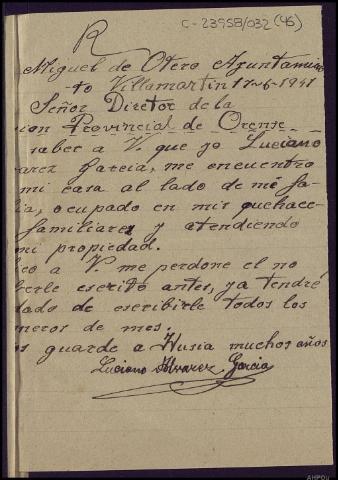 C-23958/032 (46)
R
Miguel de Otero Azuntamien
to Villamartin 17-6-1941
Señor Diretor de la
ion Provincial de Orense
sabec a V que yo Luciano
arez Garcia, me encuentro
mi casa al lado de mi fa-
ia, ocupado en mis quehace-
familiares y atendiendo
mi propiedad.
ico a V. me perdone el no
berle escrito antes, ya tendré
dado de escribirle todos los
meros de mes.
os guarde a Husia muchos años
Luciano Alvarez Garcia
AHPOU